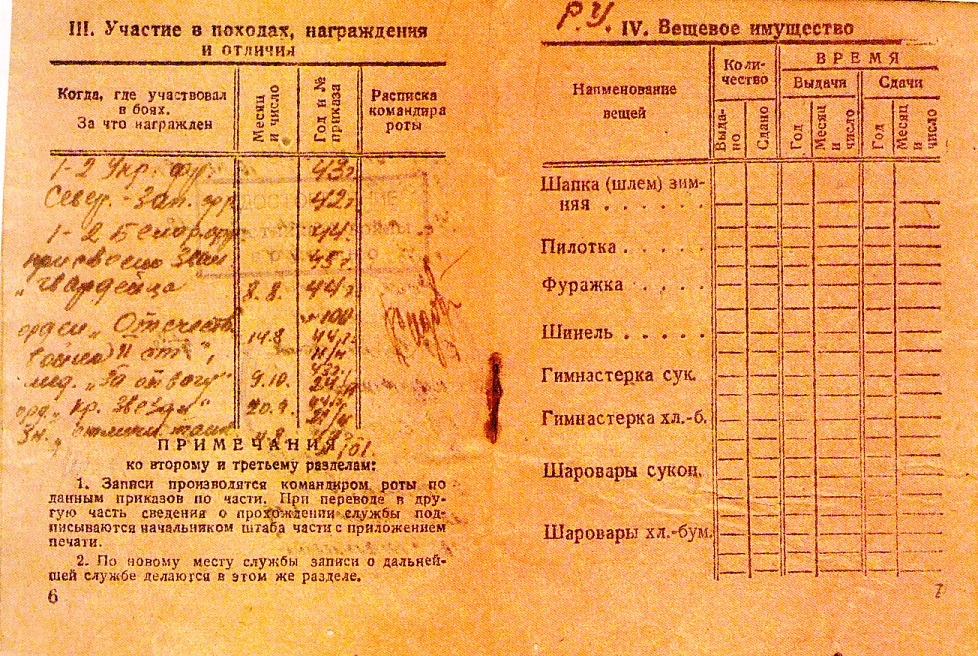 III. Участие в походах, награждения
и отличия
Когда, где участвовал
в боях.
За что награжден
Месяц
и число
Год и №
приказа
Расписка
командира
роты
1-2 Укр. фр. 43 г.
Север.-Зап. фр. 42 г.
1-2 Белорус 44 г.
присвоено Зван 45 г.
„Гвардейца" 8.8. 44 г
орден „Отечеств 100
войны II ст", 14.8 44 г.
мед. „За отвагу" 9.10.
орд. „Кр. Звезда" 20.9.
Зн. „отличн. танк
ПРИМЕЧАНИЯ
ко второму и третьему разделам:
1. Записи производятся командиром роты по
данным приказов по части. При переводе в дру-
гую часть сведения о прохождении службы под-
писываются начальником штаба части с приложением
печати.
2. По новому месту службы записи о дальней-
шей службе делаются в этом же разделе.
6
Р.У.
IV. Вещевое имущество
Наименование
вещей
Коли-
чество
ВРЕМЯ
Выдачи
Сдачи
Выда-
но
Сдано
Год
Месяц
и
число
Год
Месяц
и
число
Шапка (шлем) зим-
няя . . . . . .
Пилотка . . . . .
Фуражка . . . .
Шинель . . . . .
Гимнастерка сук.
Гимнастерка хл.-б.
Шаровары сукон.
Шаровары хл.-бум.
7